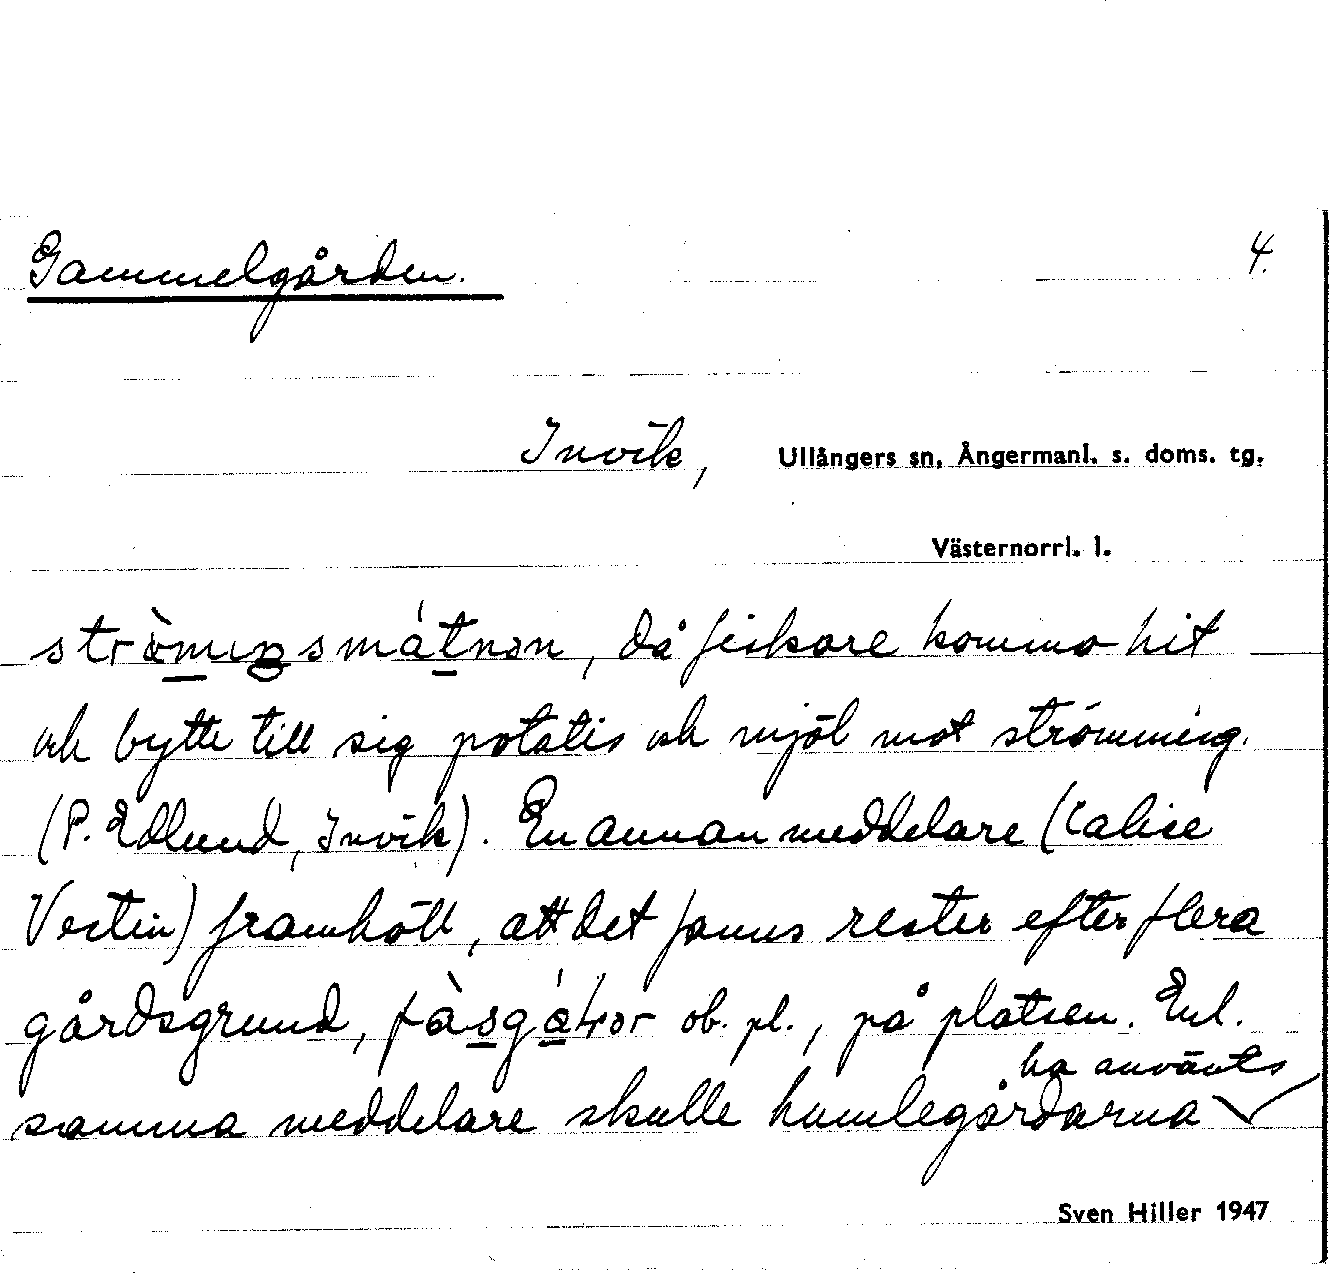 Gammelgården. 4.
Invik, Ullångers sn, Ångermanl. s. doms. tg.
Västernorrl. l.
då fiskare kommo hit
och bytte till sig potatis och mjöl mot strömming.
(P. Edlund, Invik). En annan meddelare (Calise
Vestin) framhöll, att det fanns rester efter flera
gårdsgrund, ob. pl., på platsen. Enl.
samma meddelare skulle humlegårdarna ha använts
Sven Hiller 1947